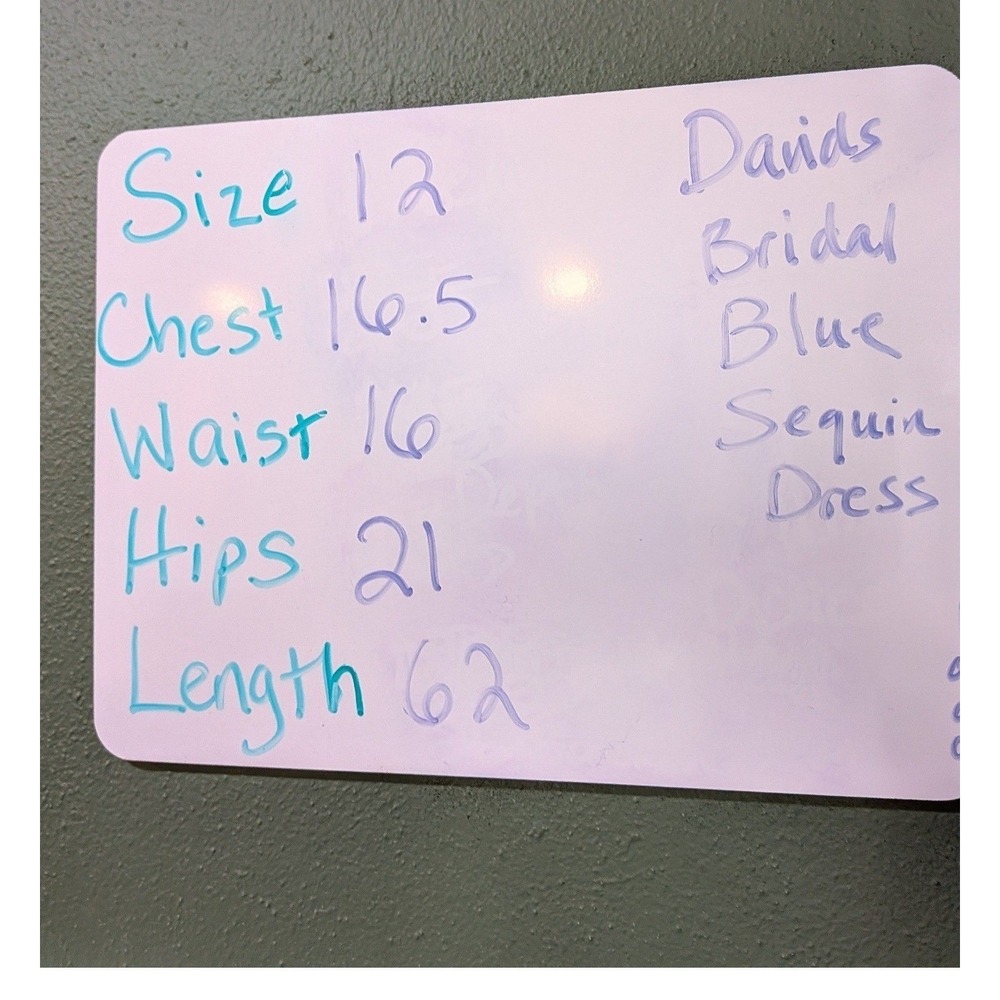 Size 12
Chest 16.5
Waist 16
Hips 21
Length 62
Davids
Bridal
Blue
Sequin
Dress